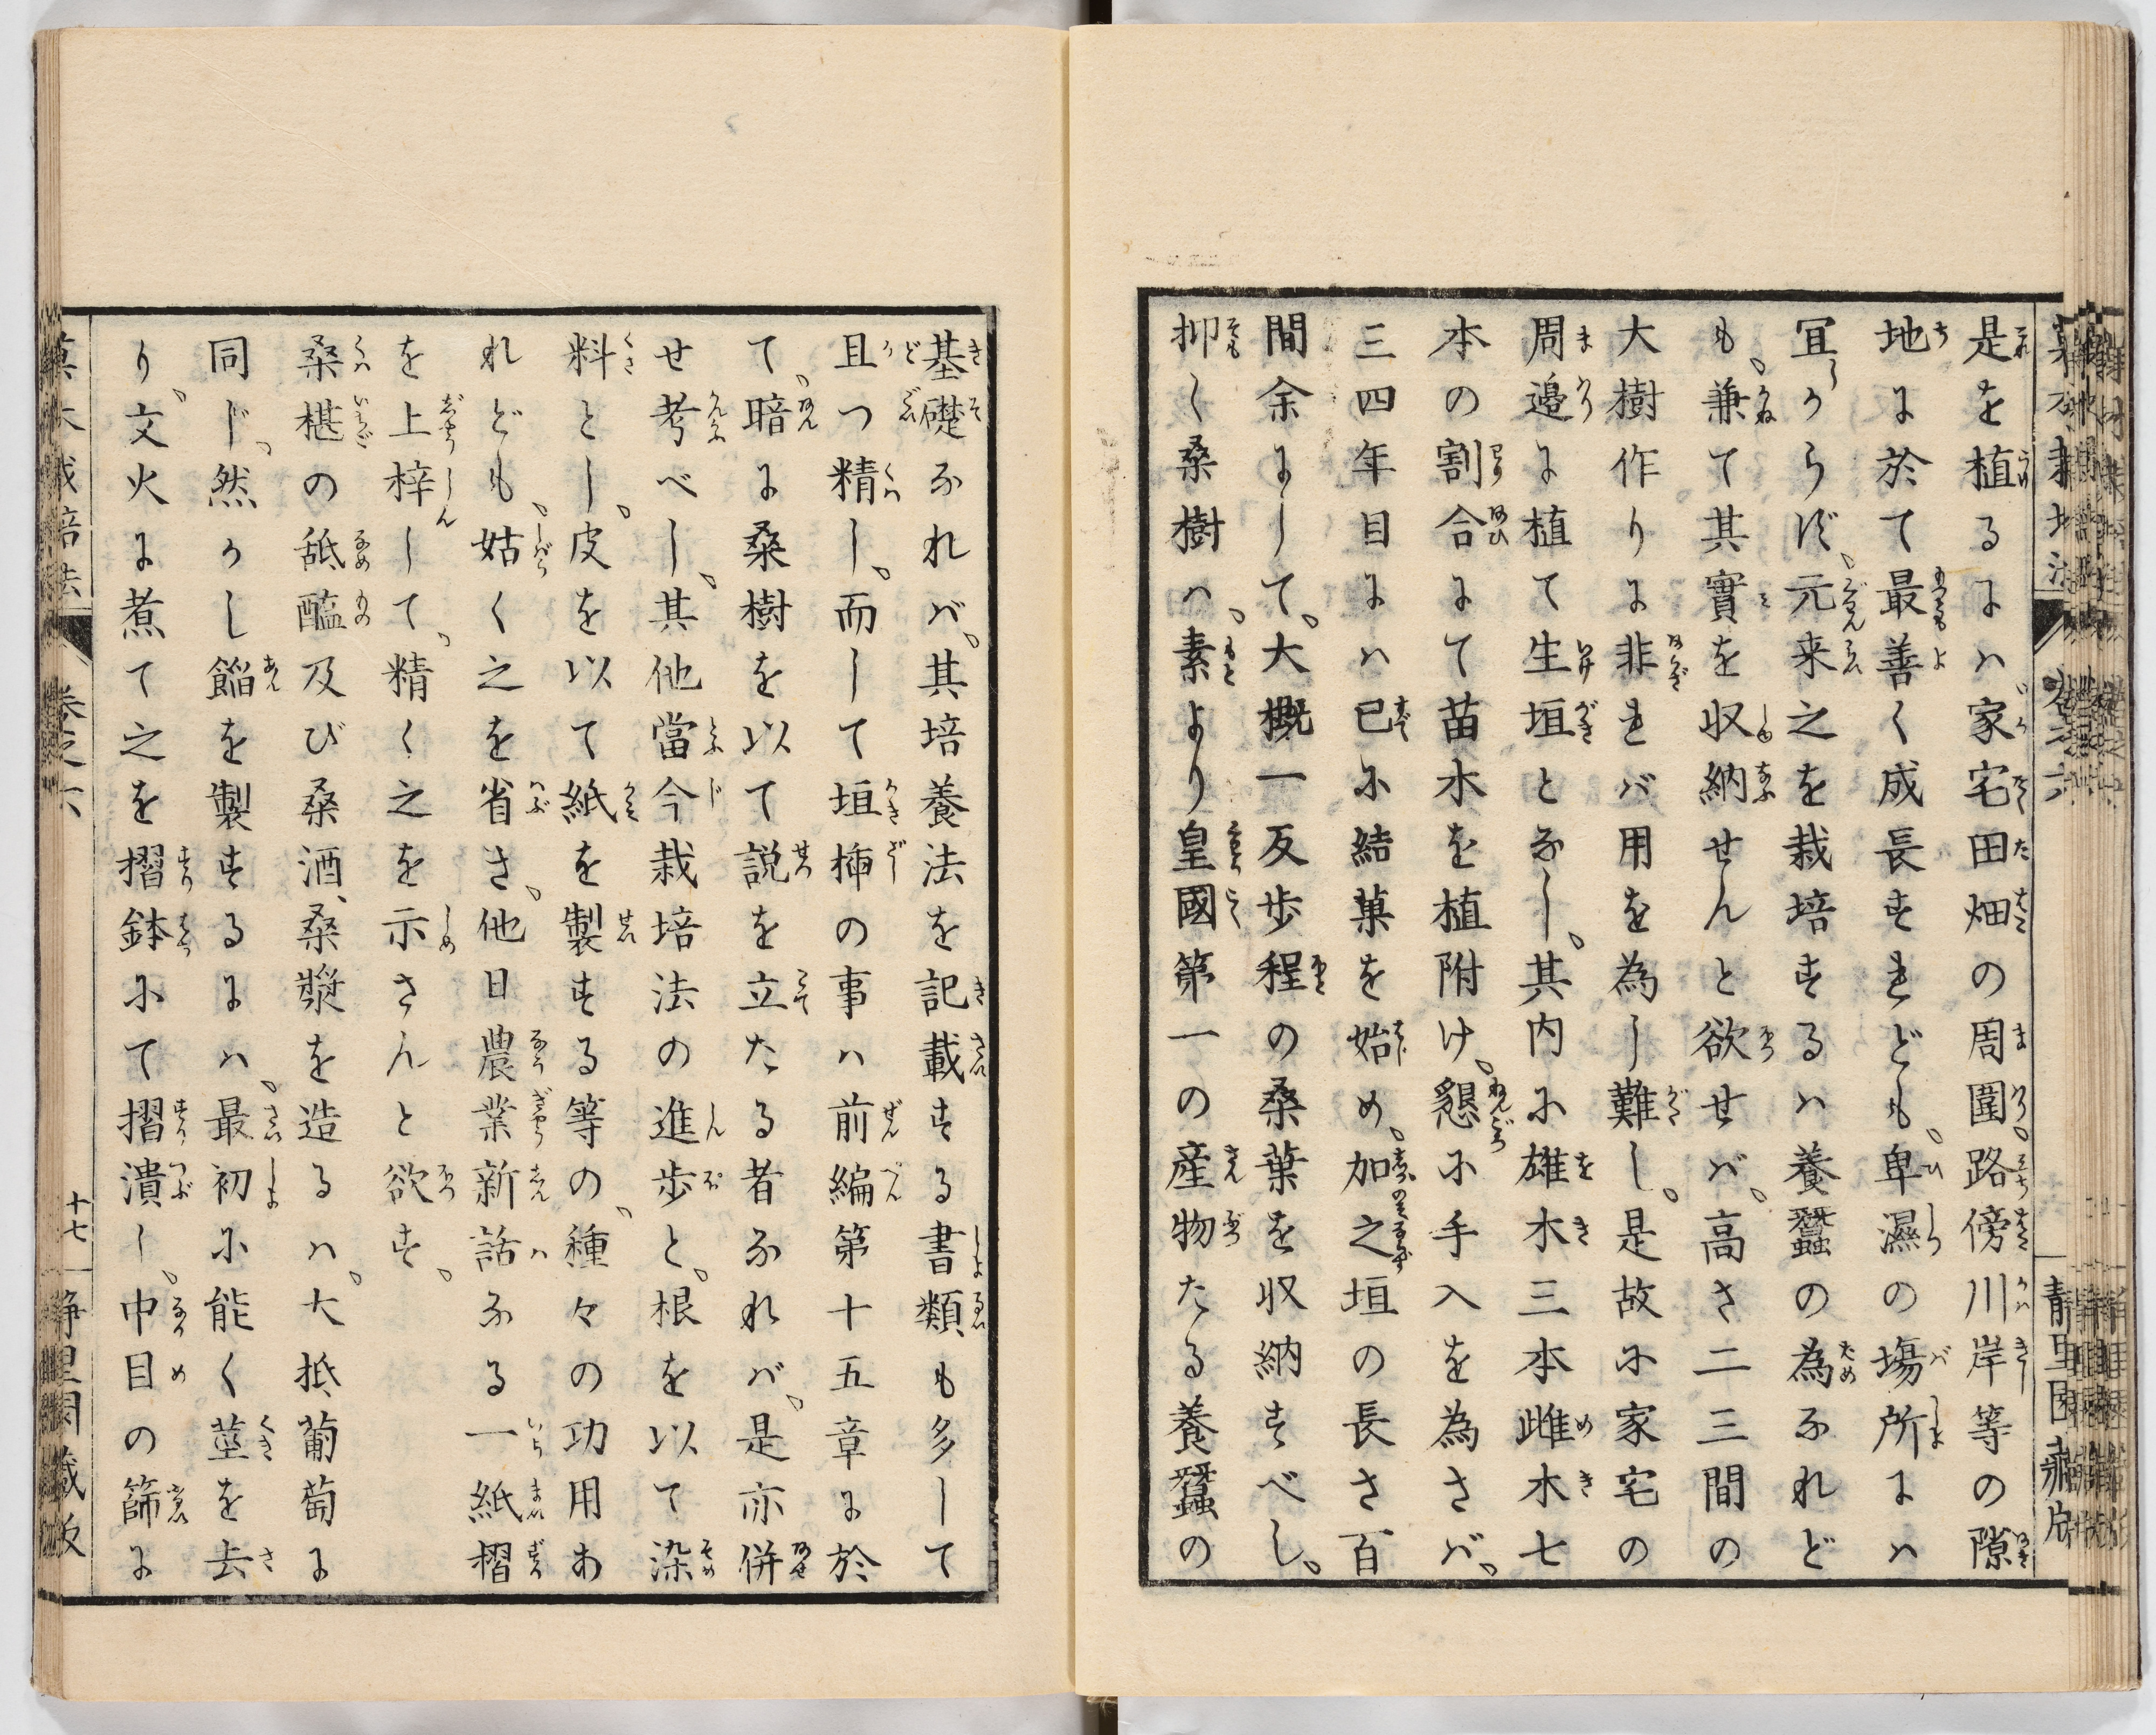 是を植るには家宅田畑の周圍、路傍川岸等の隙
地に於て最善く成長すれども、卑濕の塲所には
冝からず、元来之を栽培するは養蠶の為なれど
も、兼て其實を収納せんと欲せば、高さ二三間の
大樹作りに非れば用を為し難し。是故に家宅の
周邉に植て生垣となし、其内に雄木三本雌木七
本の割合にて苗木を植附け、懇に手入を為さば、
三四年目には已に結菓を始め、加之垣の長さ百
間余にして、大概一反歩程の桑葉を収納すべし。
抑〱桑樹は、素より皇國第一の産物たる養蠶の
基礎なれば、其培養法を記載する書類も多して
且つ精し、而して垣揷の事は前編第十五章に於
て、暗に桑樹を以て説を立たる者なれば、是亦併
せ考べし、其他當今栽培法の進歩と、根を以て染
料とし、皮を以て紙を製する等の、種々の功用あ
れども、姑く之を省き、他日農業新話なる一紙摺
を上梓して、精く之を示さんと欲す。
桑椹の舐醢及び桑酒、桑漿を造るは、大抵葡萄に
同じ、然かし餡を製するには、最初に能く莖を去
り、文火に煮て之を摺鉢にて摺潰し、中目の篩に
菓木栽培法 巻之六 十七 静里園蔵版